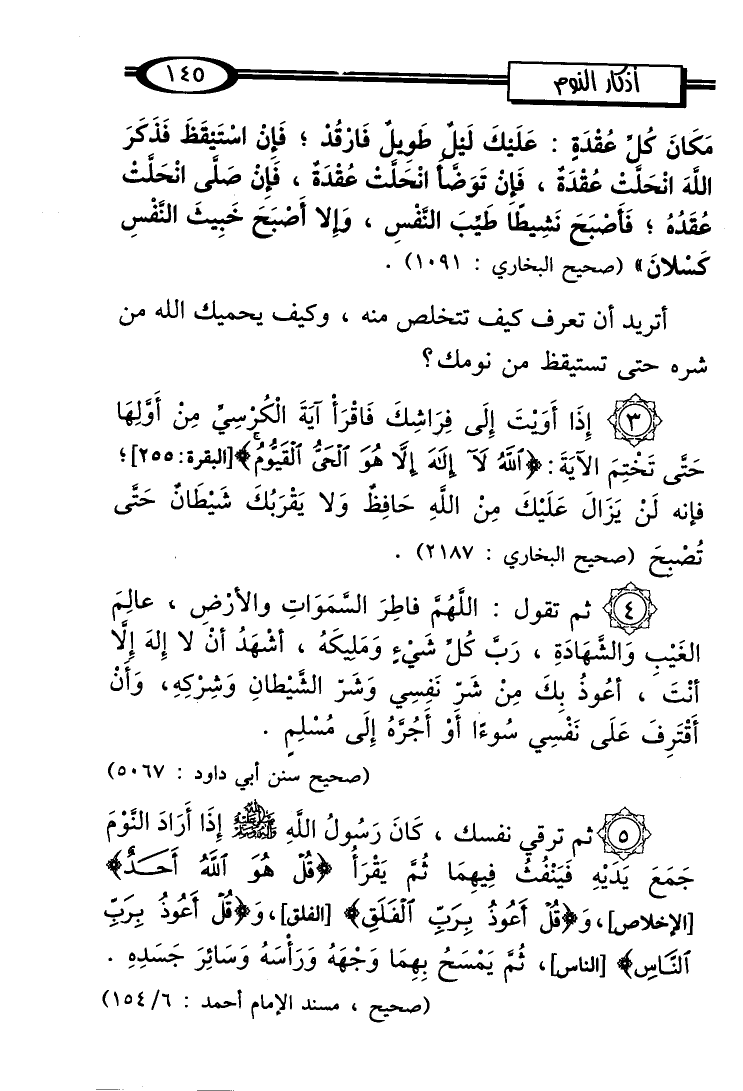 أذكار النوم
١٤٥
مَكَانَ كُلِّ عُقْدَةٍ : عَلَيْكَ لَيْلٌ طَوِيلٌ فَارْقُدْ ؛ فَإِنْ اسْتَيْقَظَ فَذَكَرَ
اللَّهَ انْحَلَّتْ عُقْدَةٌ ، فَإِنْ تَوَضَّأَ انْحَلَّتْ عُقْدَةٌ ، فَإِنْ صَلَّى انْحَلَّتْ
عُقَدُهُ ؛ فَأَصْبَحَ نَشِيطًا طَيِّبَ النَّفْسِ ، وَإِلا أَصْبَحَ خَبِيثَ النَّفْسِ
كَسْلانَ» (صحيح البخاري : ١٠٩١) .
أتريد أن تعرف كيف تتخلص منه ، وكيف يحميك الله من
شره حتى تستيقظ من نومك؟
٣ إِذَا أَوَيْتَ إِلَى فِرَاشِكَ فَاقْرَأْ آيَةَ الْكُرْسِيِّ مِنْ أَوَّلِهَا
حَتَّى تَخْتِمَ الآيَةَ : ﴿ٱللَّهُ لَآ إِلَٰهَ إِلَّا هُوَ ٱلْحَىُّ ٱلْقَيُّومُ ۚ﴾ [البقرة: ٢٥٥] ؛
فإنه لَنْ يَزَالَ عَلَيْكَ مِنْ اللَّهِ حَافِظٌ وَلا يَقْرَبُكَ شَيْطَانٌ حَتَّى
تُصْبِحَ (صحيح البخاري : ٢١٨٧) .
٤ ثم تقول : اللَّهُمَّ فاطِرَ السَّمَوَاتِ والأَرْضِ ، عالِمَ
الغَيْبِ وَالشَّهَادَةِ ، رَبَّ كُلِّ شَيْءٍ وَمَلِيكَهُ ، أشْهَدُ أنْ لا إلهَ إلَّا
أنْتَ ، أعُوذُ بِكَ مِنْ شَرِّ نَفْسِي وَشَرّ الشَّيْطانِ وَشِرْكِهِ، وَأَنْ
أَقْتَرِفَ عَلَى نَفْسِي سُوءًا أَوْ أَجُرَّهُ إِلَى مُسْلِمٍ .
(صحيح سنن أبي داود : ٥٠٦٧)
٥ ثم ترقي نفسك ، كَانَ رَسُولُ اللَّهِ ﷺ إِذَا أَرَادَ النَّوْمَ
جَمَعَ يَدَيْهِ فَيَنْفُثُ فِيهِمَا ثُمَّ يَقْرَأُ ﴿قُلْ هُوَ ٱللَّهُ أَحَدٌ﴾
[الإخلاص]، وَ﴿قُلْ أَعُوذُ بِرَبِّ ٱلْفَلَقِ﴾ [الفلق]، وَ﴿قُلْ أَعُوذُ بِرَبِّ
ٱلنَّاسِ﴾ [الناس]، ثُمَّ يَمْسَحُ بِهِمَا وَجْهَهُ وَرَأْسَهُ وَسَائِرَ جَسَدِهِ .
(صحيح ، مسند الإمام أحمد : ٦/ ١٥٤)